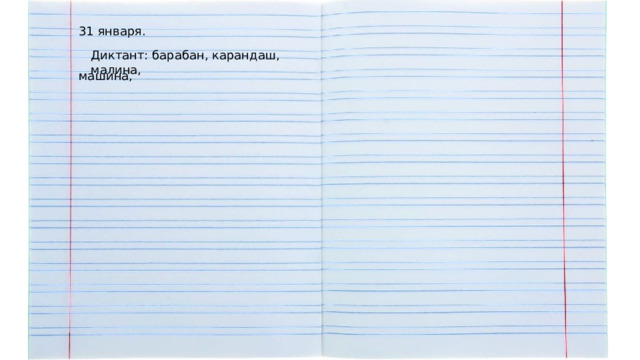 31 января.
Диктант: барабан, карандаш,
малина,
машина,